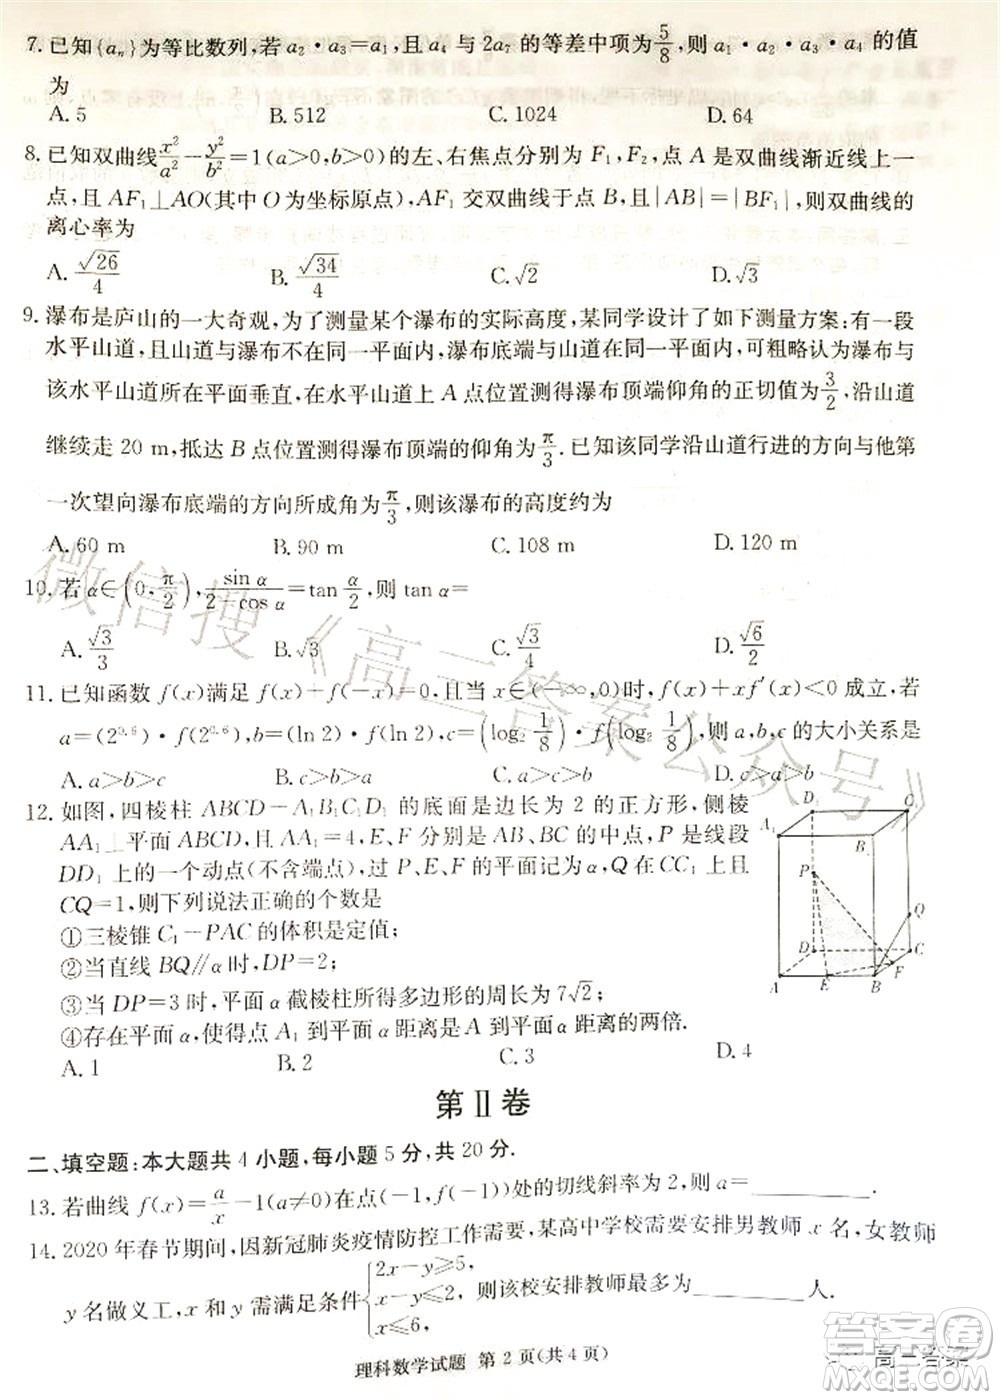 7. 已知{aₙ}为等比数列,若 a₂·a₃=a₁,且 a₄ 与 2a₇ 的等差中项为 5/8,则 a₁·a₂·a₃·a₄ 的值
为
A. 5 B. 512 C. 1024 D. 64
8. 已知双曲线 x²/a² − y²/b² =1(a>0,b>0)的左、右焦点分别为 F₁,F₂,点 A 是双曲线渐近线上一
点,且 AF₁⊥AO(其中 O 为坐标原点),AF₁ 交双曲线于点 B,且|AB|=|BF₁|,则双曲线的
离心率为
A. √26/4 B. √34/4 C. √2 D. √3
9. 瀑布是庐山的一大奇观,为了测量某个瀑布的实际高度,某同学设计了如下测量方案:有一段
水平山道,且山道与瀑布不在同一平面内,瀑布底端与山道在同一平面内,可粗略认为瀑布与
该水平山道所在平面垂直,在水平山道上 A 点位置测得瀑布顶端仰角的正切值为 3/2,沿山道
继续走 20 m,抵达 B 点位置测得瀑布顶端的仰角为 π/3. 已知该同学沿山道行进的方向与他第
一次望向瀑布底端的方向所成角为 π/3,则该瀑布的高度约为
A. 60 m B. 90 m C. 108 m D. 120 m
10. 若 α∈(0,π/2),sin α/(2−cos α)=tan α/2,则 tan α=
A. √3/3 B. √3 C. √3/4 D. √6/2
11. 已知函数 f(x)满足 f(x)+f(−x)=0,且当 x∈(−∞,0)时,f(x)+xf′(x)<0 成立,若
a=(2⁰·⁶)·f(2⁰·⁶),b=(ln 2)·f(ln 2),c=(log₂ 1/8)·f(log₂ 1/8),则 a,b,c 的大小关系是
A. a>b>c B. c>b>a C. a>c>b D. c>a>b
12. 如图,四棱柱 ABCD−A₁B₁C₁D₁ 的底面是边长为 2 的正方形,侧棱
AA₁⊥平面 ABCD,且 AA₁=4,E、F 分别是 AB、BC 的中点,P 是线段
DD₁ 上的一个动点(不含端点),过 P、E、F 的平面记为 α,Q 在 CC₁ 上且
CQ=1,则下列说法正确的个数是
①三棱锥 C₁−PAC 的体积是定值;
②当直线 BQ∥α 时,DP=2;
③当 DP=3 时,平面 α 截棱柱所得多边形的周长为 7√2;
④存在平面 α,使得点 A₁ 到平面 α 距离是 A 到平面 α 距离的两倍.
A. 1 B. 2 C. 3 D. 4
D₁ C₁
A₁ B₁
P
Q
D C
F
A E B
第Ⅱ卷
二、填空题:本大题共 4 小题,每小题 5 分,共 20 分.
13. 若曲线 f(x)=a/x−1(a≠0)在点(−1,f(−1))处的切线斜率为 2,则 a=________.
14. 2020 年春节期间,因新冠肺炎疫情防控工作需要,某高中学校需要安排男教师 x 名,女教师
y 名做义工,x 和 y 需满足条件{2x−y≥5, x−y≤2, x≤6, 则该校安排教师最多为________人.
理科数学试题 第 2 页(共 4 页)
微信搜《高三答案公众号》
答案圈
高三答案